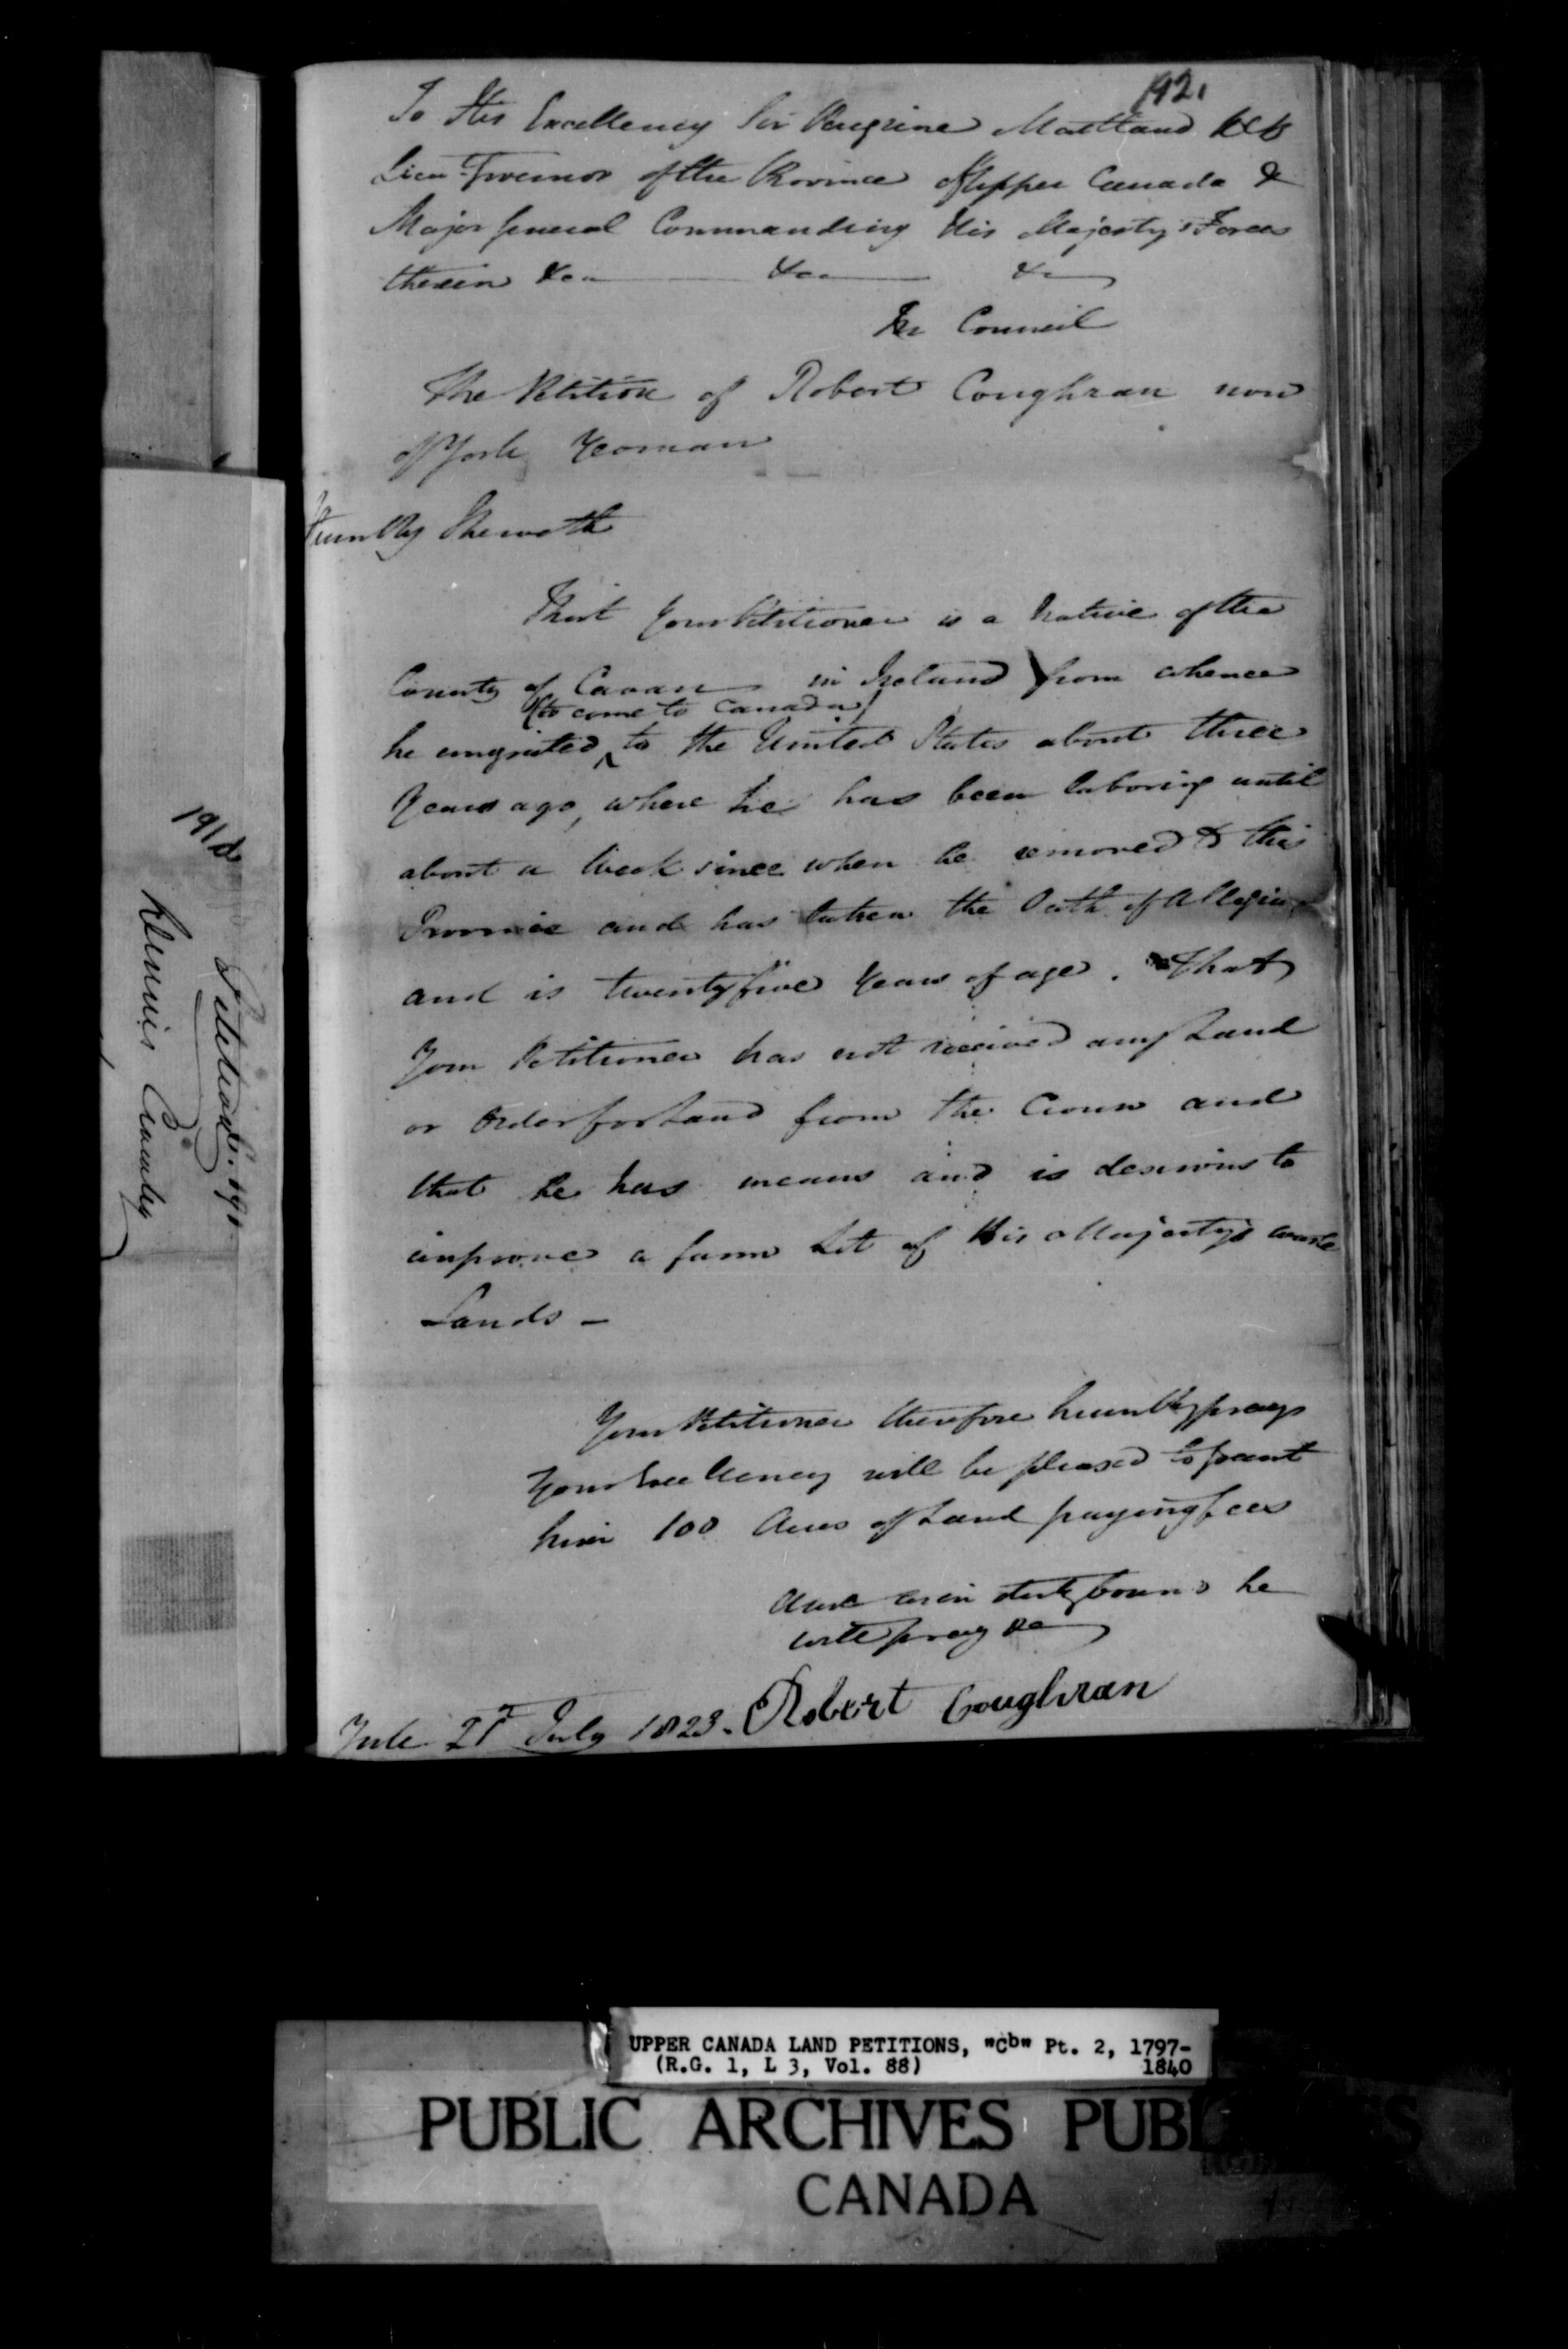 192.
To His Excellency Sir Peregrine Maitland KCB
Lieu.t Governor of the Province of Upper Canada &
Major General Commanding His Majesty's Forces
therein &c &c &c
In Council
The Petition of Robert Coughran now
of York Yeoman
Humbly Sheweth
That Your Petitioner is a Native of the
County of Cavan in Ireland from whence
(to come to Canada)
he emigrated to the United States about three
Years ago, where he has been laboring until
about a Week since when he removed to this
Province and has taken the Oath of Allegiance
and is twenty five Years of age. That
Your Petitioner has not received any Land
or Order for Land from the Crown and
that he has means and is desirous to
improve a farm Lot of His Majesty's waste
Lands -
Your Petitioner therefore humbly prays
Your Excellency will be pleased to grant
him 100 Acres of Land paying fees
And as in duty bound he
will pray &c
York 21st July 1823. Robert Coughran
191d
Petition
Dennis
UPPER CANADA LAND PETITIONS, "Cb" Pt. 2, 1797-
(R.G. 1, L 3, Vol. 88) 1840
PUBLIC ARCHIVES PUBL
CANADA